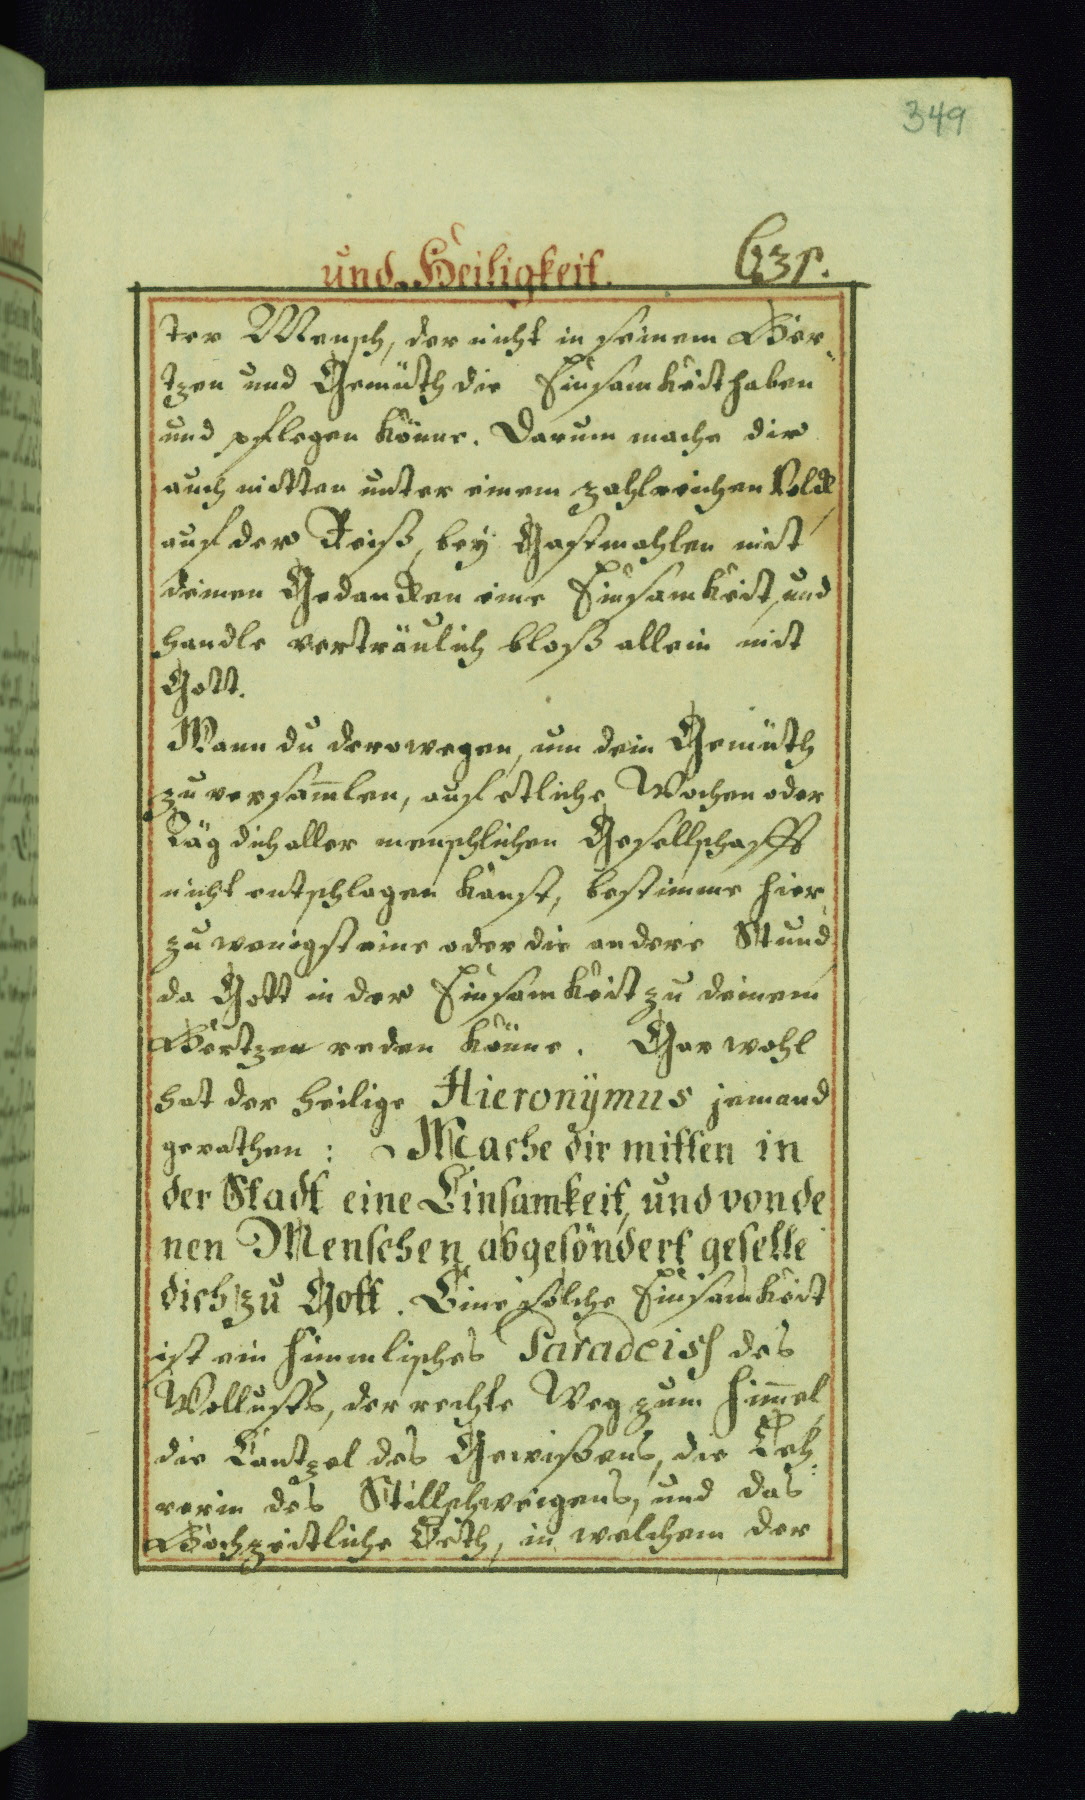 349
und Heiligkeit. 631.
ter Mensch, der nicht in seinem Her-
tzen und Gemüth die Einsamkeit haben
und pflegen könne. Darum mache dir
auch mitten unter einem zahlreichen Volck
auf der Reiß, bey Gastmahlen mit
deinen Gedancken eine Einsamkeit, und
handle verträulich bloß allein mit
Gott.
Wann du derowegen, um dein Gemüth
zu versam̅len, auf etliche Wochen oder
Täg dich aller menschlichen Gesellschafft
nicht entschlagen kanst, bestimme hier
zu wenigst eine oder die andere Stund
da Gott in der Einsamkeit zu deinem
Hertzen reden könne. Gar wohl
hat der heilige Hieronÿmus jemand
gerathen: Mache dir mitten in
der Stadt eine Einsamkeit, und von de
nen Menschen abgesöndert geselle
dich zu Gott. Eine solche Einsamkeit
ist ein himmlisches Paradeiss des
Wollusts, der rechte Weg zum Him̅el,
die Cantzel des Gewißens, die Leh-
rerin des Stillschweigens, und das
Hochzeitliche Beth, in welchem der